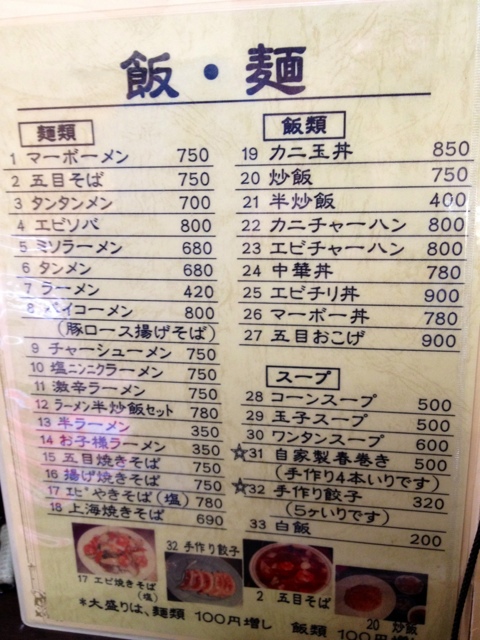 飯・麺
麺類
1 マーボーメン 750
2 五目そば 750
3 タンタンメン 700
4 エビソバ 800
5 ミソラーメン 680
6 タンメン 680
7 ラーメン 420
8 パイコーメン 800
(豚ロース揚げそば)
9 チャーシューメン 750
10 塩ニンニクラーメン 750
11 激辛ラーメン 750
12 ラーメン半炒飯セット 780
13 半ラーメン 350
14 お子様ラーメン 350
15 五目焼きそば 750
16 揚げ焼きそば 750
17 エビやきそば(塩) 780
18 上海焼きそば 690
飯類
19 カニ玉丼 850
20 炒飯 750
21 半炒飯 400
22 カニチャーハン 800
23 エビチャーハン 800
24 中華丼 780
25 エビチリ丼 900
26 マーボー丼 780
27 五目おこげ 900
スープ
28 コーンスープ 500
29 玉子スープ 500
30 ワンタンスープ 600
☆31 自家製春巻き 500
(手作り4本いりです)
☆32 手作り餃子 320
(5ヶいりです)
33 白飯 200
17 エビ焼きそば
(塩)
32 手作り餃子
2 五目そば
20 炒飯
*大盛りは、麺類 100円増し 飯類 100円